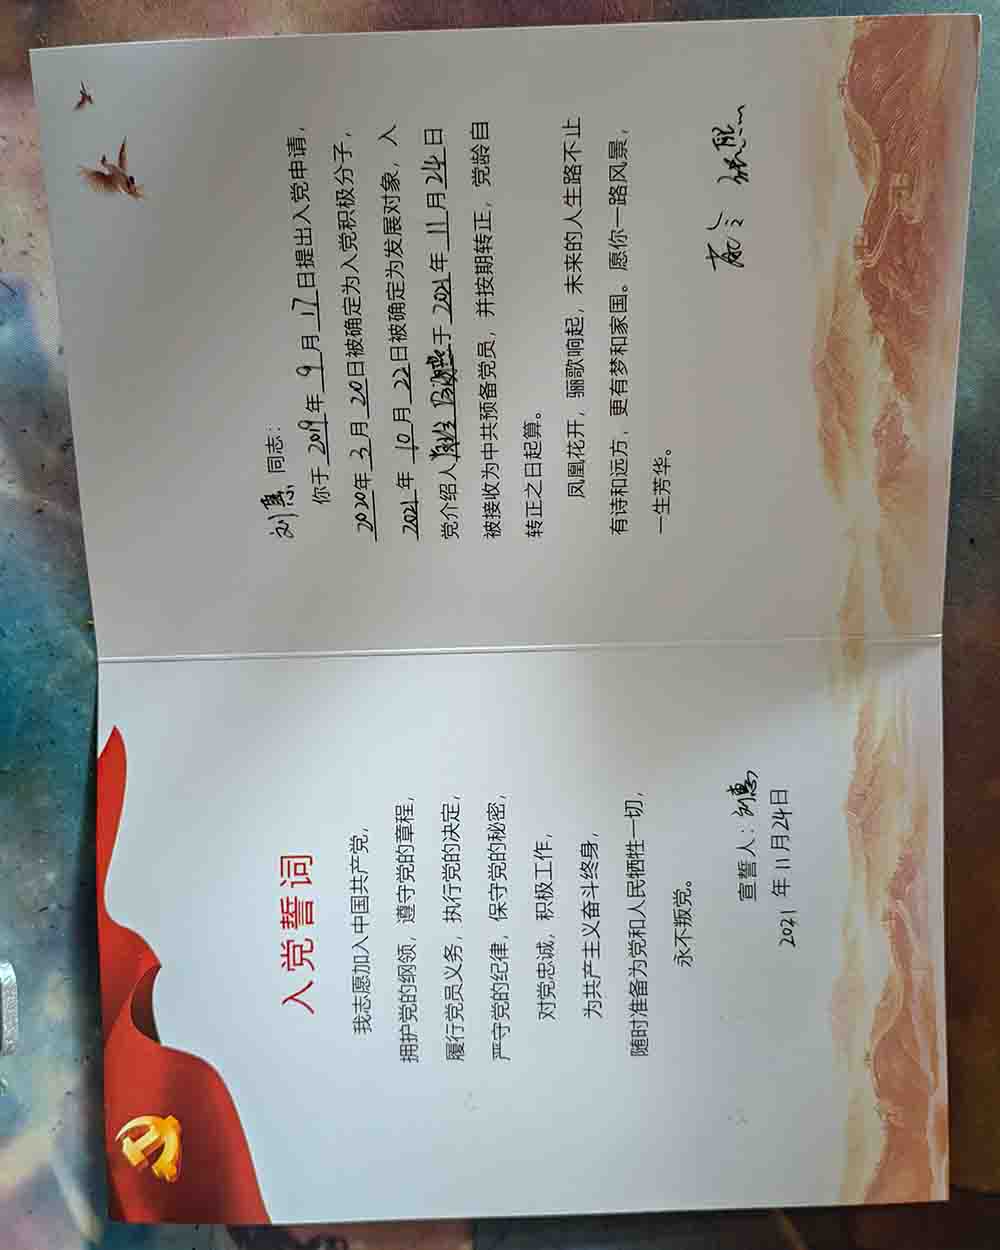 入党誓词
我志愿加入中国共产党,
拥护党的纲领,遵守党的章程,
履行党员义务,执行党的决定,
严守党的纪律,保守党的秘密,
对党忠诚,积极工作,
为共产主义奋斗终身,
随时准备为党和人民牺牲一切,
永不叛党。
宣誓人:刘惠
2021年11月24日
刘惠同志:
你于2019年9月17日提出入党申请,
2020年3月20日被确定为入党积极分子,
2021年10月22日被确定为发展对象,入
党介绍人于2021年11月24日
被接收为中共预备党员,并按期转正,党龄自
转正之日起算。
凤凰花开,骊歌响起,未来的人生路不止
有诗和远方,更有梦和家国。愿你一路风景,
一生芳华。